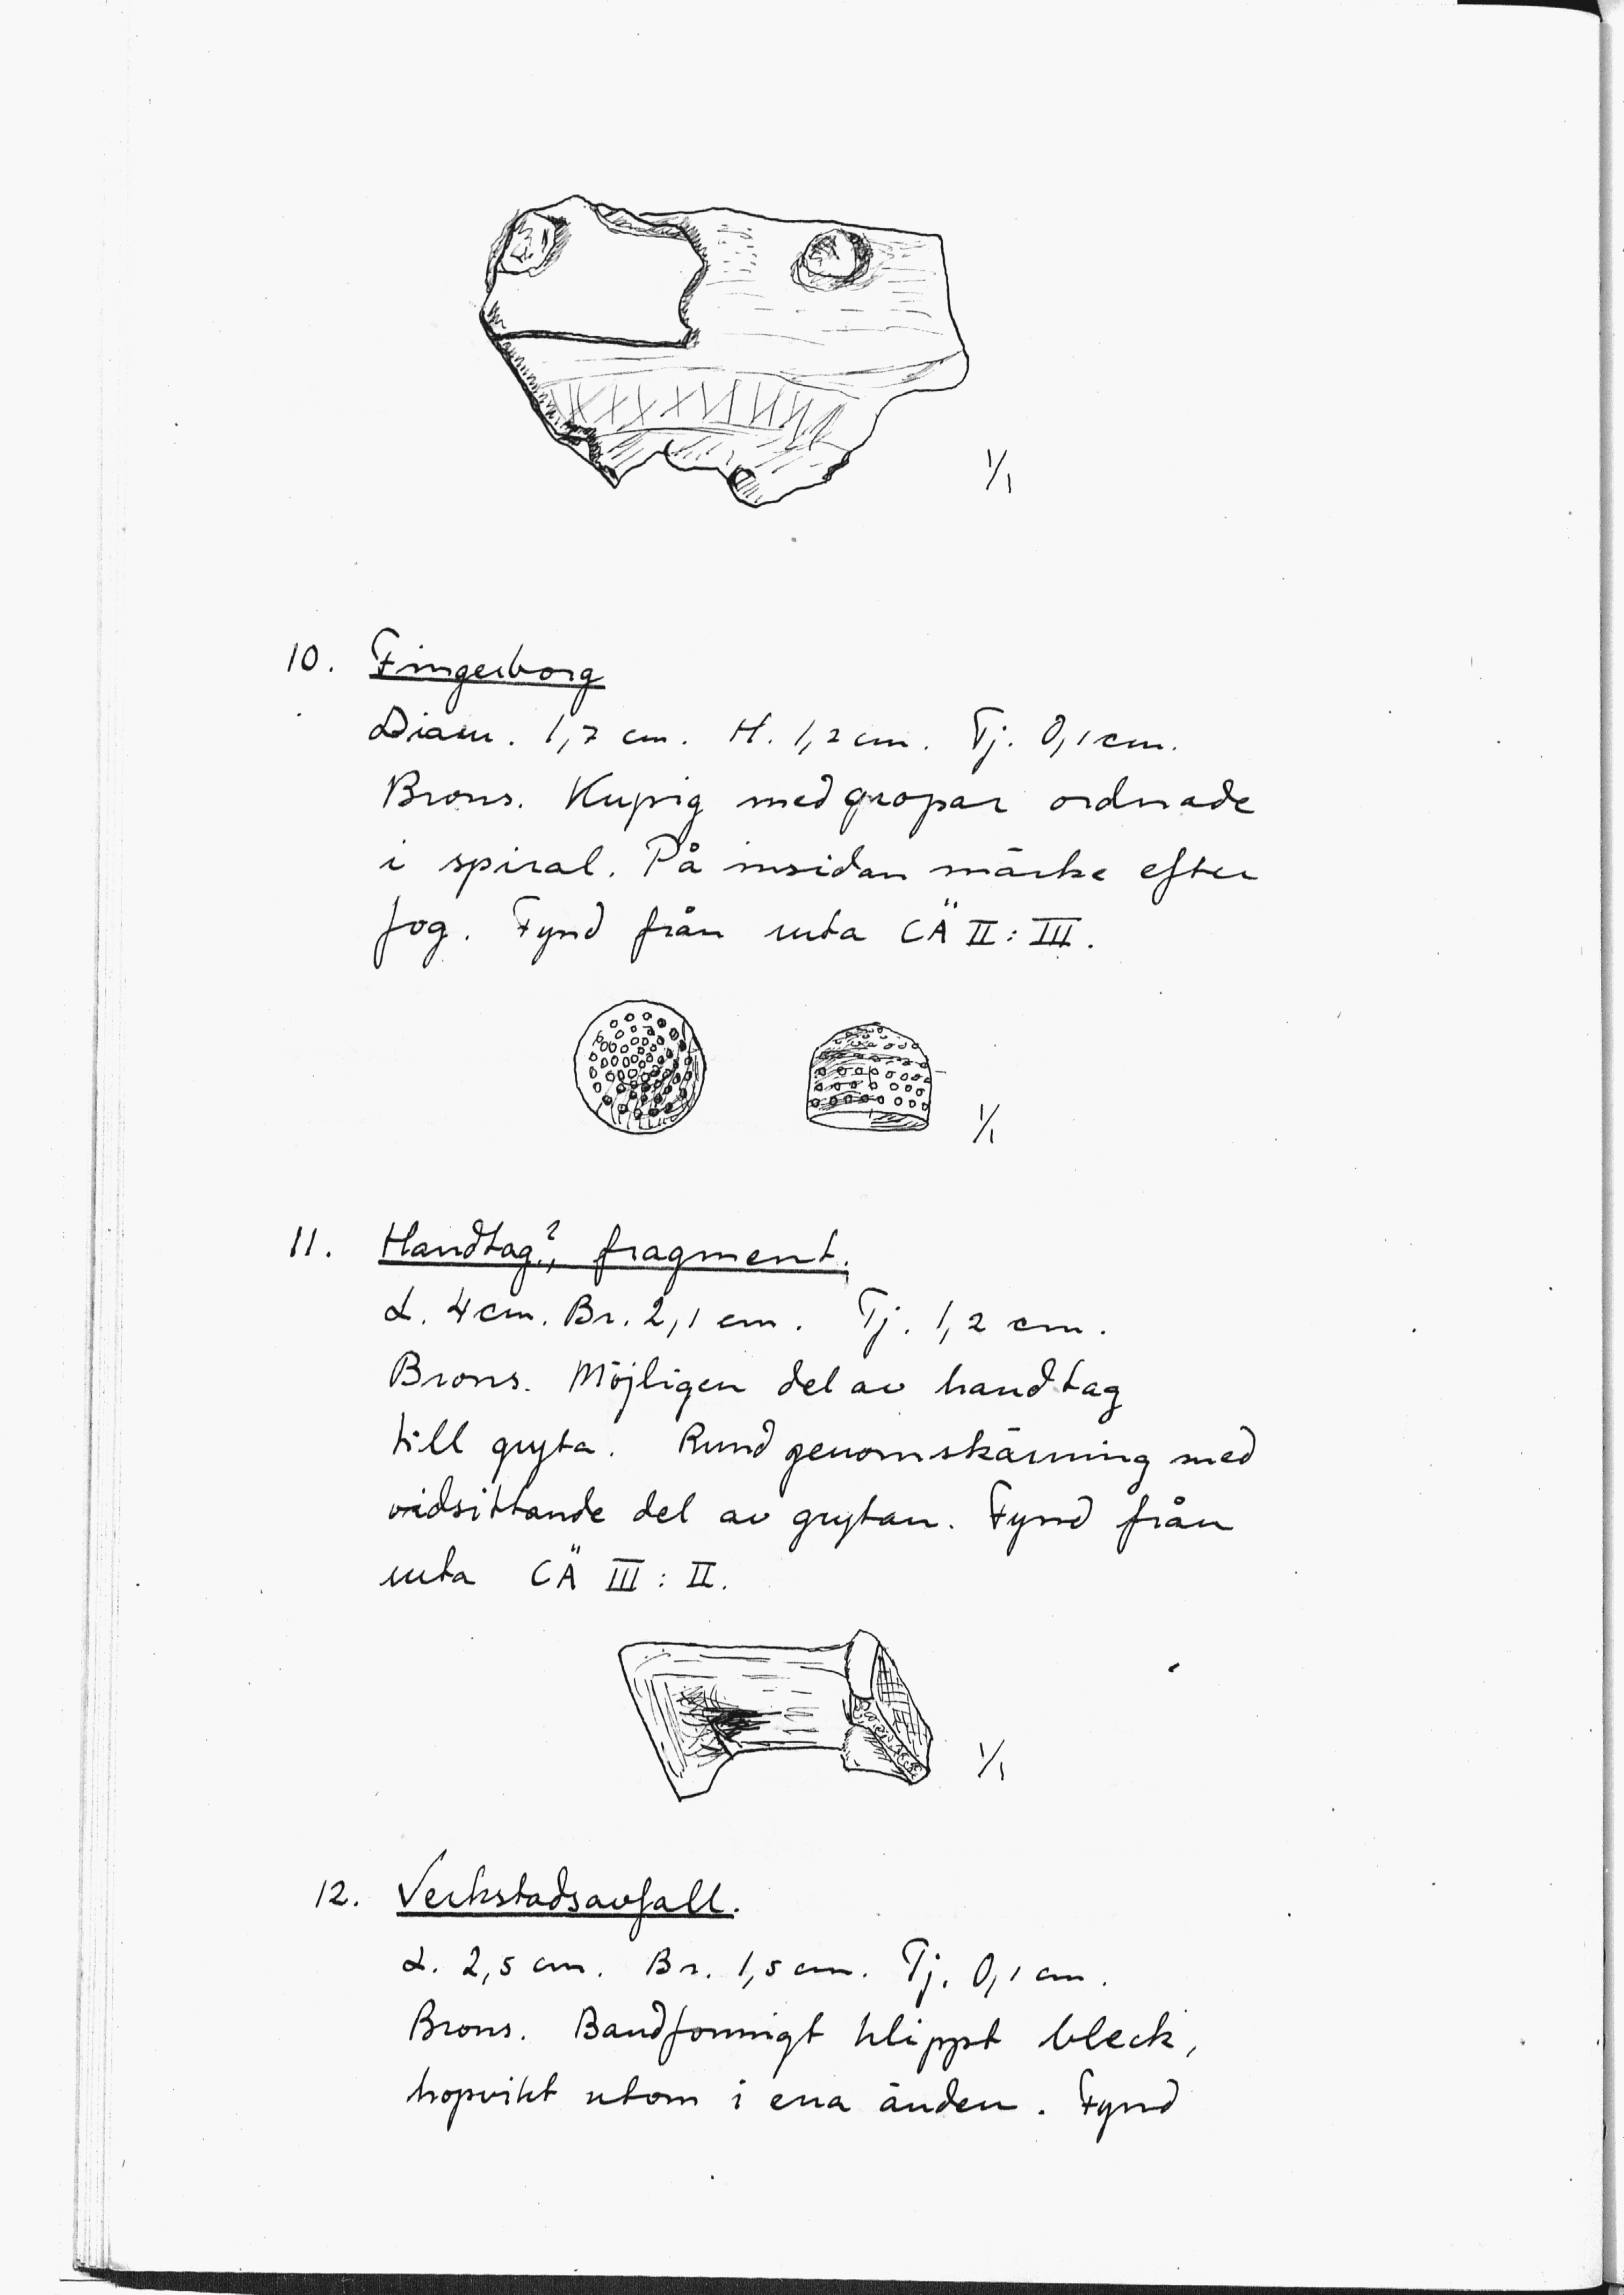 1/1
10. Fingerborg
Diam. 1,7 cm. H. 1,2 cm. Tj. 0,1 cm.
Brons. Kupig med gropar ordnade
i spiral. På insidan märke efter
fog. Fynd från ruta CÄ II : III.
1/1
11. Handtag?, fragment.
L. 4 cm. Br. 2,1 cm. Tj. 1,2 cm.
Brons. Möjligen del av handtag
till gryta. Rund genomskärning med
vidsittande del av grytan. Fynd från
ruta CÄ III : II.
1/1
12. Verkstadsavfall.
L. 2,5 cm. Br. 1,5 cm. Tj. 0,1 cm.
Brons. Bandformigt klippt bleck,
hopvikt utom i ena änden. Fynd